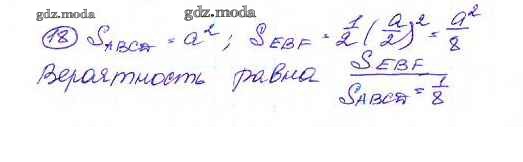 gdz.moda gdz.moda
(18) S_ABCД = a²; S_EBF = 1/2 (a/2)² = a²/8
Вероятность равна S_EBF/S_ABCД = 1/8